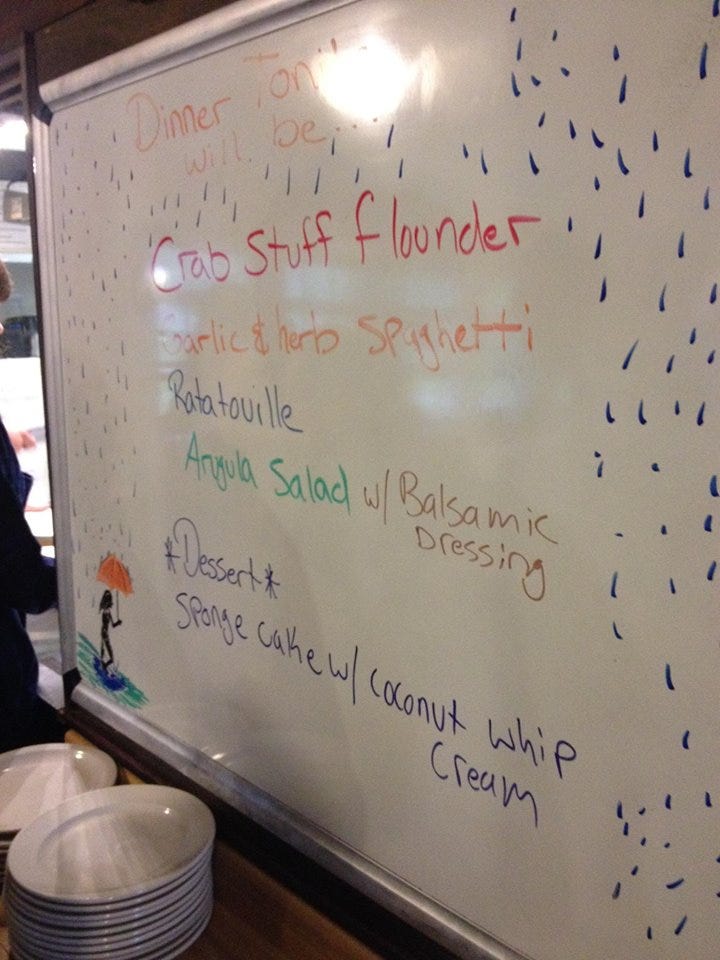 Dinner
will be...
Crab Stuff flounder
Garlic & herb Spaghetti
Ratatouille
Arugula Salad w/ Balsamic
Dressing
*Dessert*
Sponge cake w/ coconut whip
cream